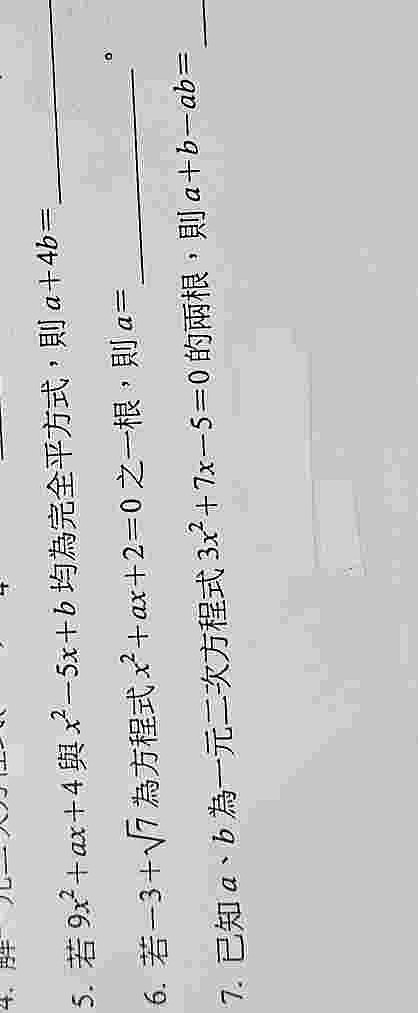 4. 解一元二次方程式
5. 若 9x²+ax+4 與 x²−5x+b 均為完全平方式，則 a+4b=______
6. 若 −3+√7 為方程式 x²+ax+2=0 之一根，則 a=______。
7. 已知 a、b 為一元二次方程式 3x²+7x−5=0 的兩根，則 a+b−ab=______